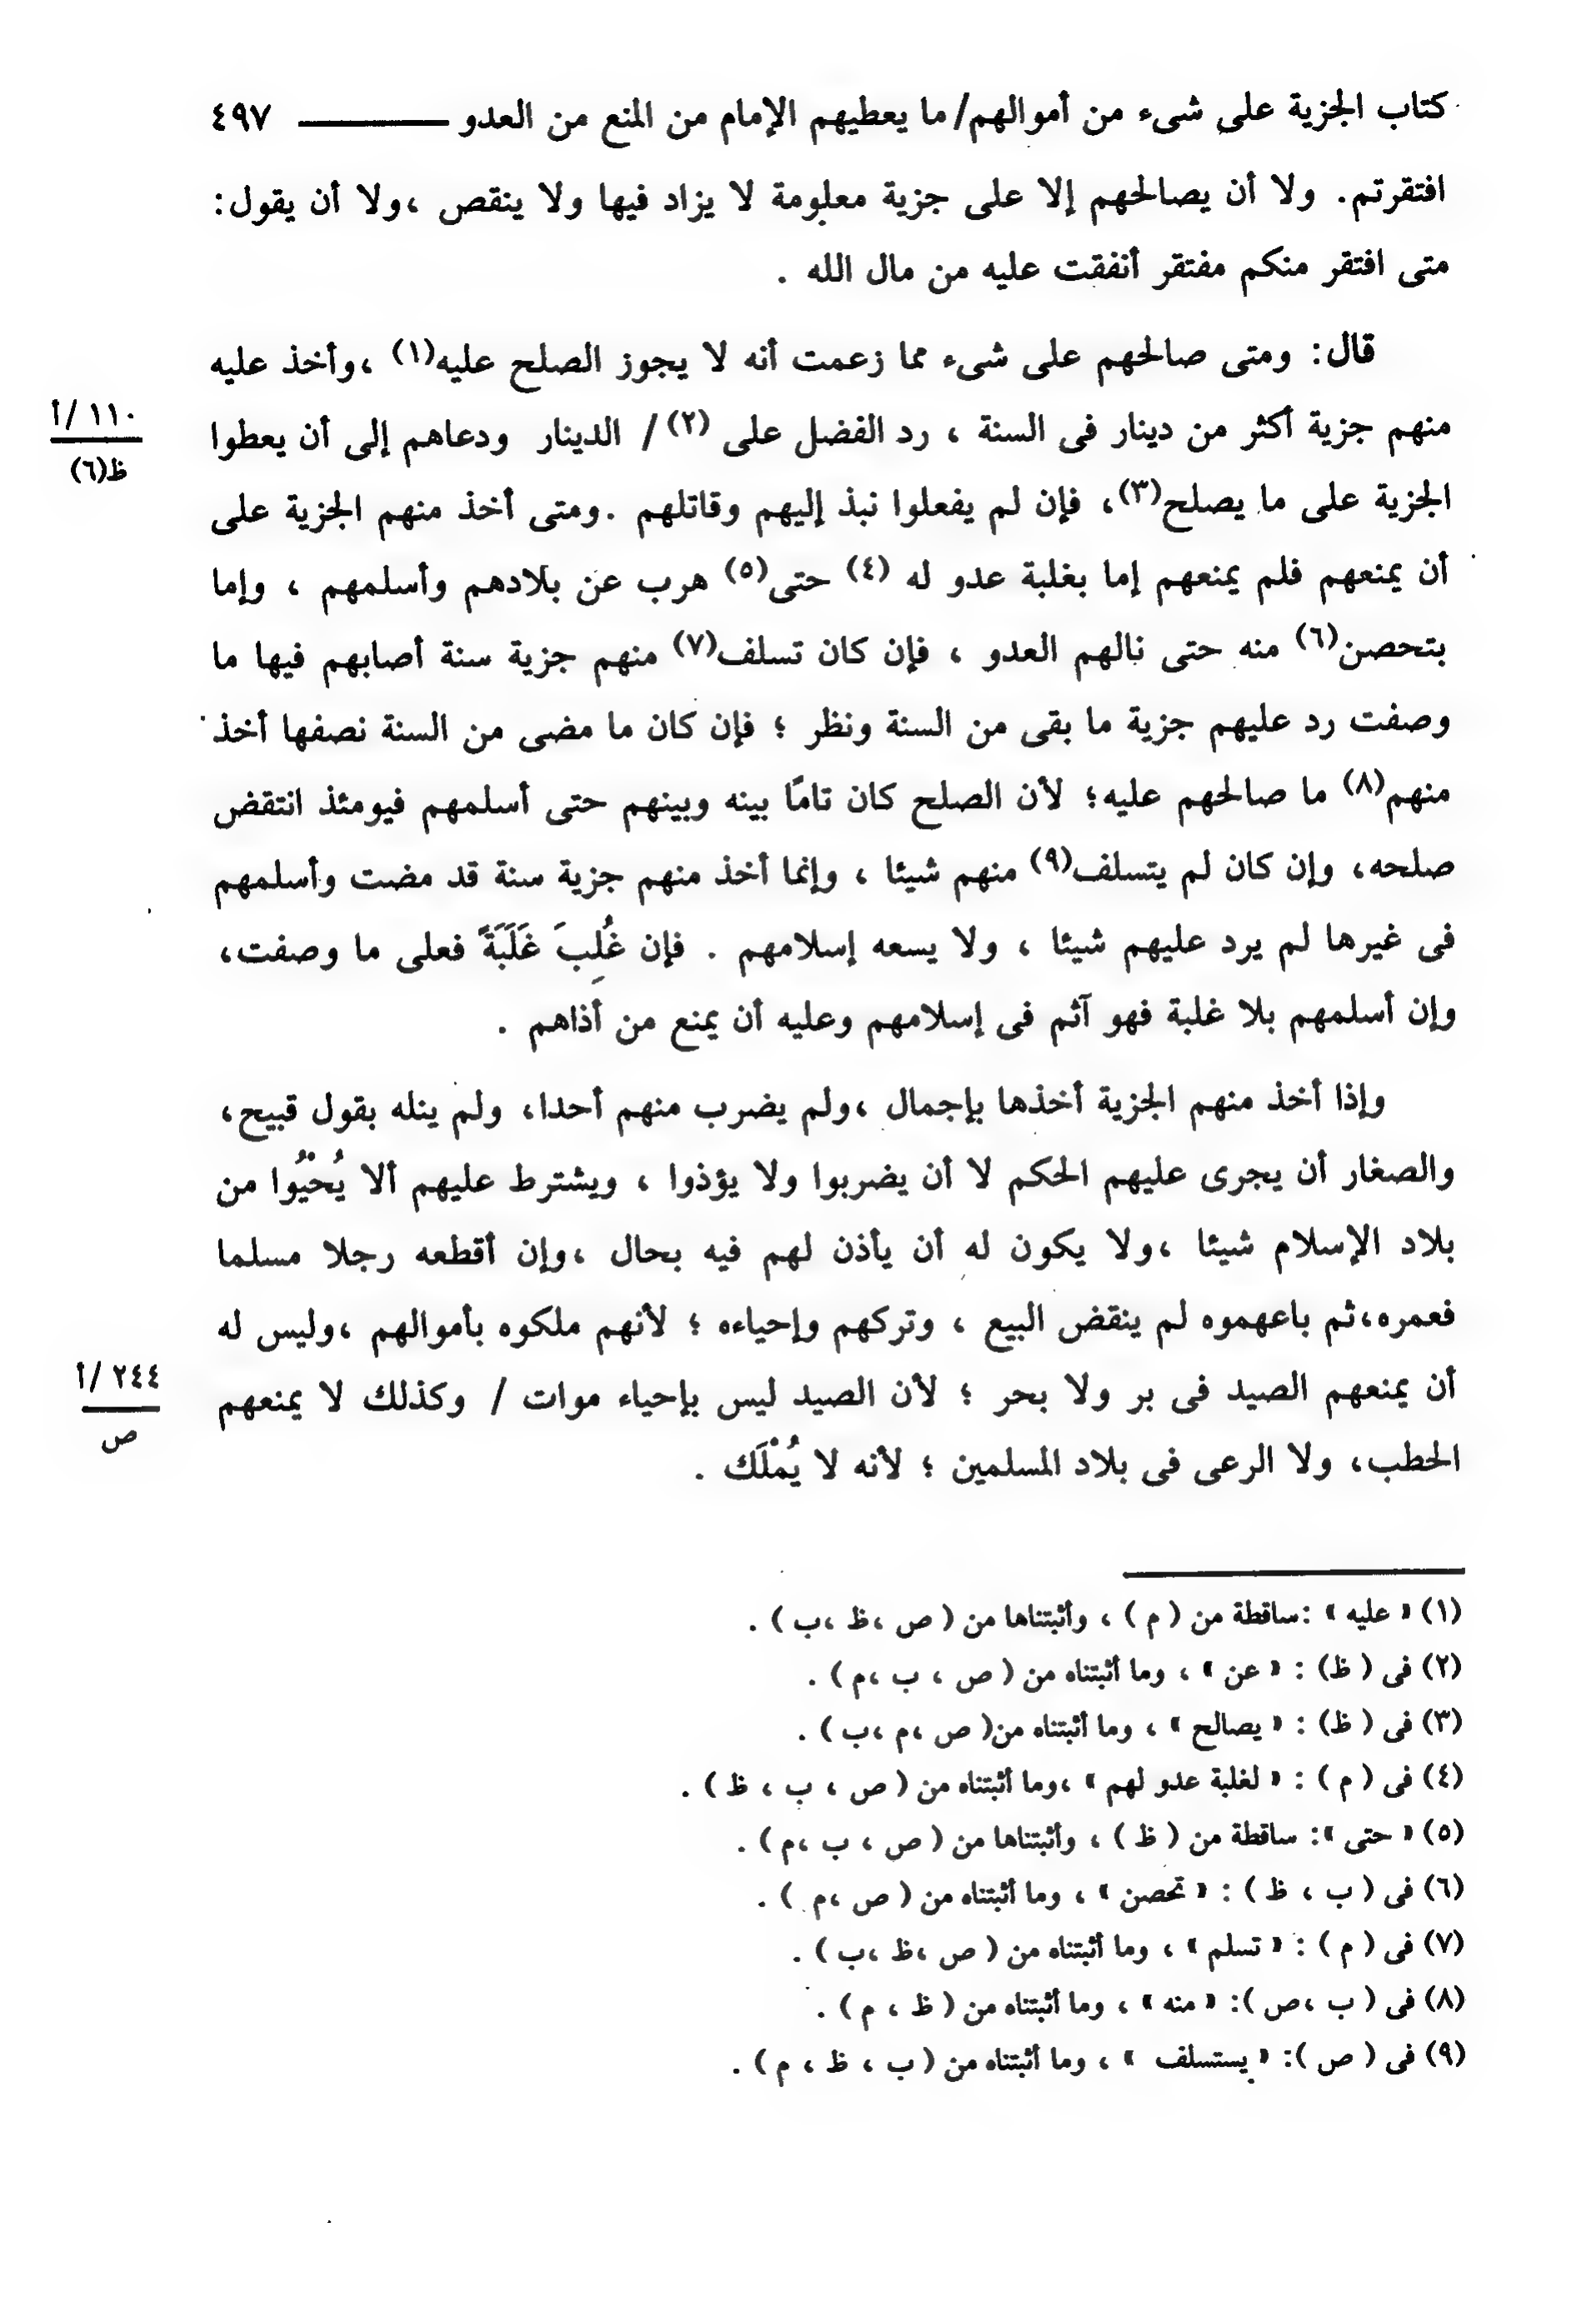 كتاب الجزية على شىء من أموالهم/ ما يعطيهم الإمام من المنع من العدو ــــــــ ٤٩٧
افتقرتم. ولا أن يصالحهم إلا على جزية معلومة لا يزاد فيها ولا ينقص ،ولا أن يقول:
متى افتقر منكم مفتقر أنفقت عليه من مال الله .
قال: ومتى صالحهم على شىء مما زعمت أنه لا يجوز الصلح عليه(١) ،وأخذ عليه
منهم جزية أكثر من دينار فى السنة ، رد الفضل على (٢)/ الدينار ودعاهم إلى أن يعطوا
١١٠ /أ
ظ(٦)
الجزية على ما يصلح(٣)، فإن لم يفعلوا نبذ إليهم وقاتلهم .ومتى أخذ منهم الجزية على
أن يمنعهم فلم يمنعهم إما بغلبة عدو له (٤) حتى(٥) هرب عن بلادهم وأسلمهم ، وإما
بتحصن(٦) منه حتى نالهم العدو ، فإن كان تسلف(٧) منهم جزية سنة أصابهم فيها ما
وصفت رد عليهم جزية ما بقى من السنة ونظر ؛ فإن كان ما مضى من السنة نصفها أخذ
منهم(٨) ما صالحهم عليه؛ لأن الصلح كان تامًا بينه وبينهم حتى أسلمهم فيومئذ انتقض
صلحه، وإن كان لم يتسلف(٩) منهم شيئا ، وإنما أخذ منهم جزية سنة قد مضت وأسلمهم
فى غيرها لم يرد عليهم شيئا ، ولا يسعه إسلامهم . فإن غُلِبَ غَلَبَةً فعلى ما وصفت،
وإن أسلمهم بلا غلبة فهو آثم فى إسلامهم وعليه أن يمنع من أذاهم .
وإذا أخذ منهم الجزية أخذها بإجمال ،ولم يضرب منهم أحدا، ولم ينله بقول قبيح،
والصغار أن يجرى عليهم الحكم لا أن يضربوا ولا يؤذوا ، ويشترط عليهم ألا يُحْيُوا من
بلاد الإسلام شيئا ،ولا يكون له أن يأذن لهم فيه بحال ،وإن أقطعه رجلا مسلما
فعمره،ثم باعهموه لم ينقض البيع ، وتركهم وإحياءه ؛ لأنهم ملكوه بأموالهم ،وليس له
أن يمنعهم الصيد فى بر ولا بحر ؛ لأن الصيد ليس بإحياء موات / وكذلك لا يمنعهم
٢٤٤ /أ
ص
الحطب، ولا الرعى فى بلاد المسلمين ؛ لأنه لا يُمْلَك .
(١) « عليه » :ساقطة من ( م ) ، وأثبتناها من ( ص ،ظ ،ب ) .
(٢) فى ( ظ) : « عن » ، وما أثبتناه من ( ص ، ب ،م ) .
(٣) فى ( ظ) : « يصالح » ، وما أثبتناه من( ص ،م ،ب ) .
(٤) فى ( م ) : « لغلبة عدو لهم » ،وما أثبتناه من ( ص ، ب ، ظ ) .
(٥) « حتى »: ساقطة من ( ظ ) ، وأثبتناها من ( ص ، ب ،م ) .
(٦) فى ( ب ، ظ ) : « تحصن » ، وما أثبتناه من ( ص ،م ) .
(٧) فى ( م ) : « تسلم » ، وما أثبتناه من ( ص ،ظ ،ب ) .
(٨) فى ( ب ،ص ): « منه » ، وما أثبتناه من ( ظ ، م ) .
(٩) فى ( ص ): « يستسلف » ، وما أثبتناه من ( ب ، ظ ، م ) .